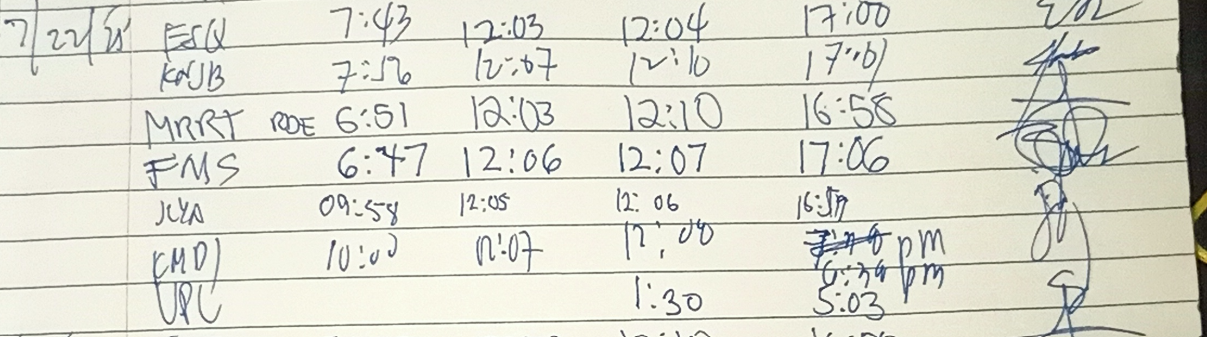 7/22/25 ESQ 7:43 12:03 12:04 17:00
KWJB 7:56 12:07 12:10 17:01
MRRT RDE 6:51 12:03 12:10 16:58
FMS 6:47 12:06 12:07 17:06
09:58 12:05 12:06
10:00 12:07 12:08 pm
pm
UPC 1:30 5:03